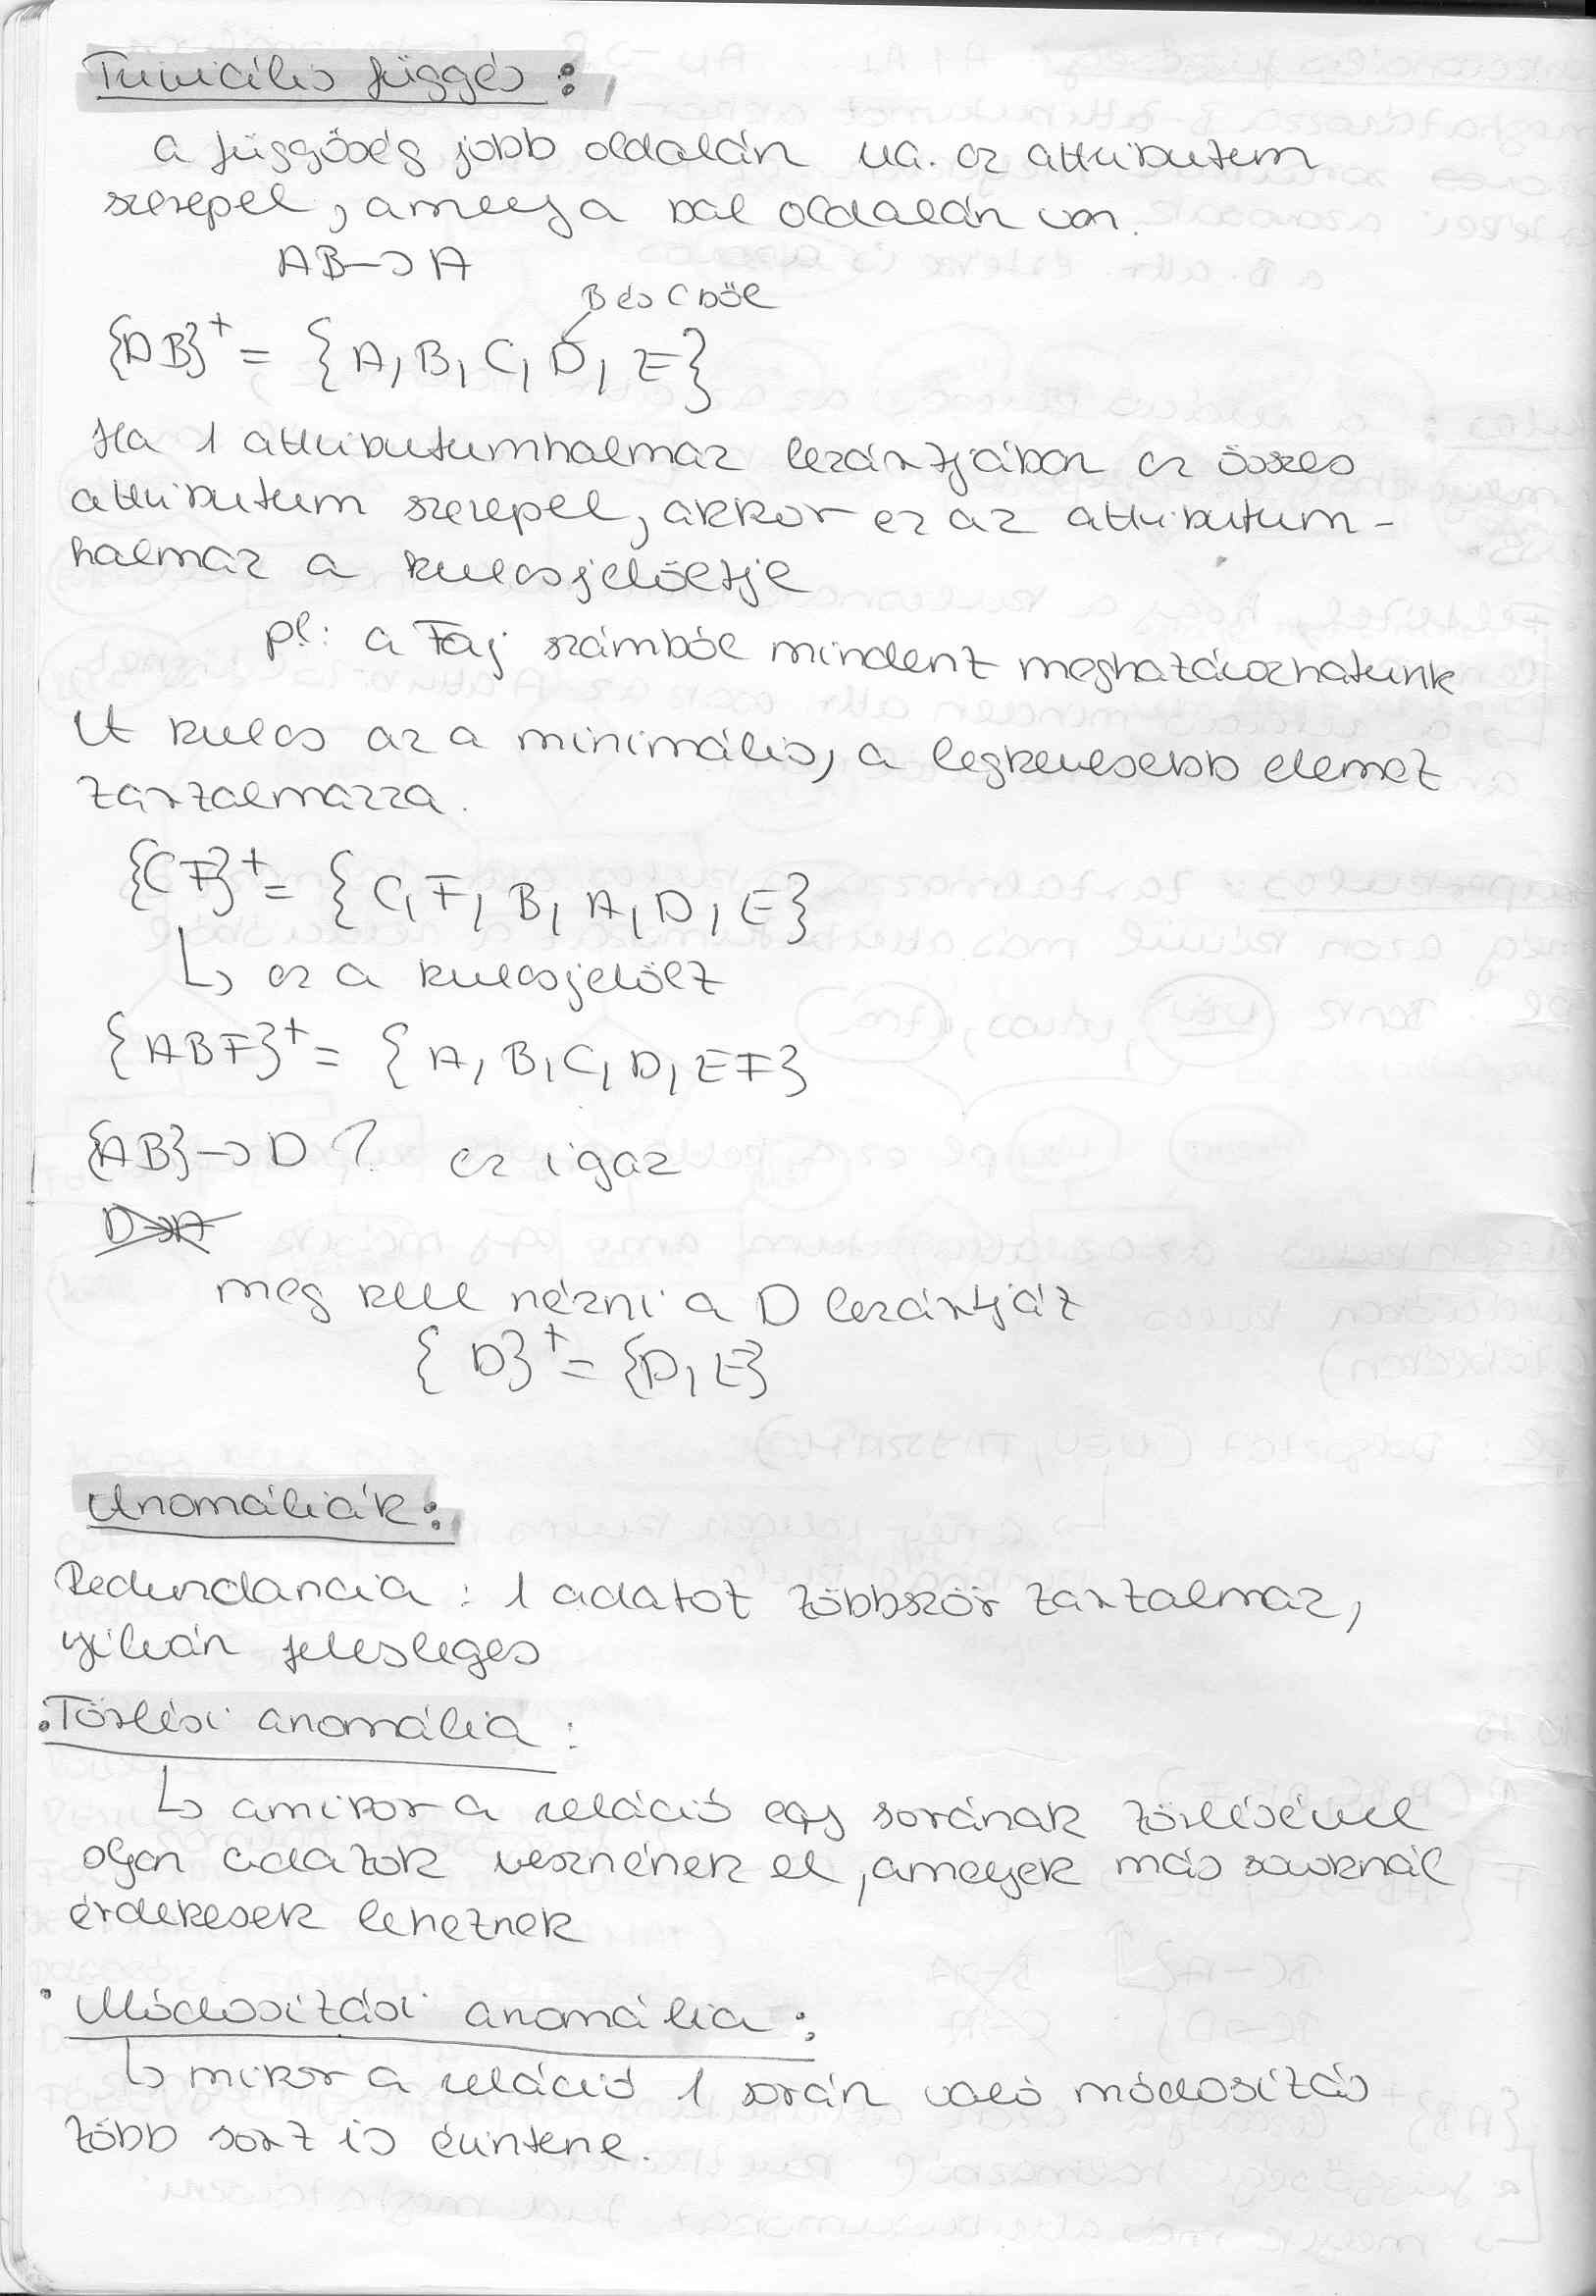 Triviális függés:
a függőség jobb oldalán ua. az attributum
szerepel, amely a bal oldalán van.
AB→A
B és C ből
{AB}⁺ = {A, B, C, D, E}
Ha 1 attributumhalmaz lezártjában az összes
attributum szerepel, akkor ez az attributum-
halmaz a kulcsjelöltje
pl: a Faj számból mindent meghatározhatunk
A kulcs az a minimális, a legkevesebb elemet
tartalmazza.
{CF}⁺ = {C, F, B, A, D, E}
↳ ez a kulcsjelölt
{ABF}⁺ = {A, B, C, D, E F}
{AB}→D ? ez igaz
D→A
meg kell nézni a D lezártját
{D}⁺ = {D, E}
Anomáliák:
Redundancia: 1 adatot többször tartalmaz,
nyilván felesleges
• Törlési anomália:
↳ amikor a reláció egy sorának törlésével
olyan adatok vesznének el, amelyek más soroknál
érdekesek lehetnek
• Módosítási anomália:
↳ mikor a reláció 1 során való módosítás
több sort is érintene.